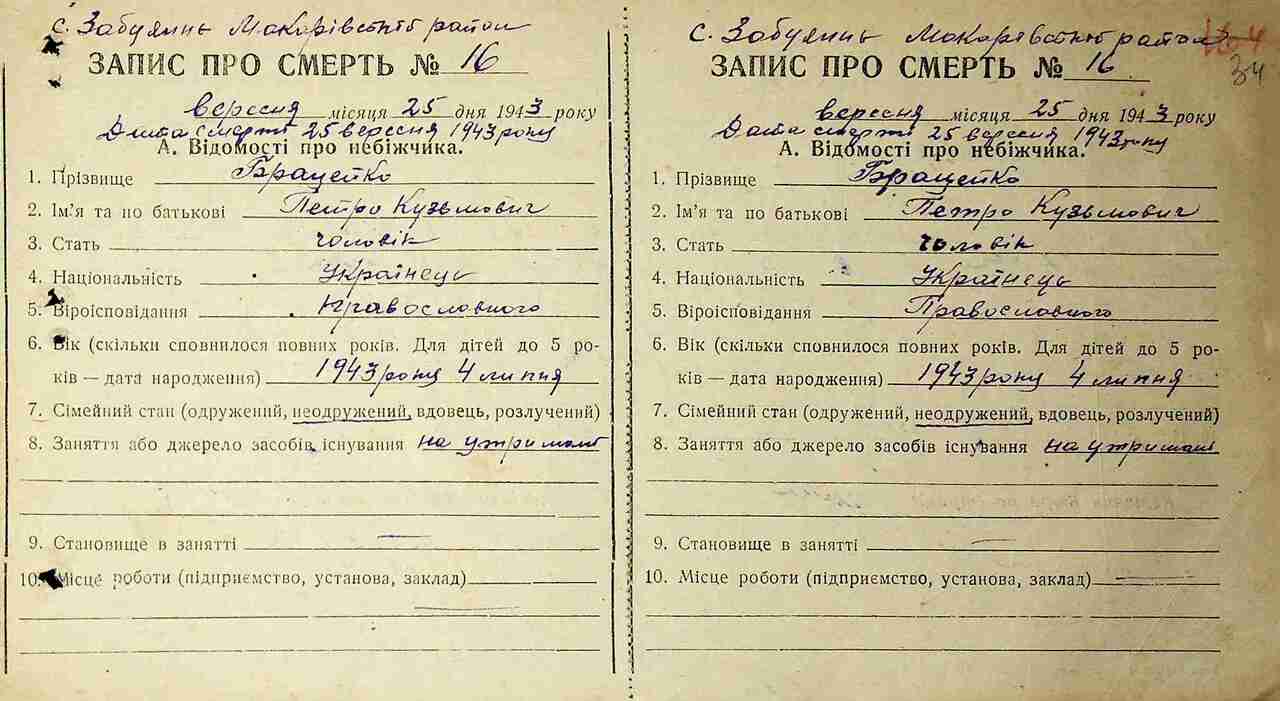 с. Забуяння Макарівський район
ЗАПИС ПРО СМЕРТЬ № 16
вересня місяця 25 дня 1943 року
Дата смерті 25 вересня 1943 року
А. Відомості про небіжчика.
1. Прізвище Брацейко
2. Ім'я та по батькові Петро Кузьмович
3. Стать чоловік
4. Національність Українець
5. Віроісповідання Православного
6. Вік (скільки сповнилося повних років. Для дітей до 5 ро-
ків — дата народження) 1943 року 4 липня
7. Сімейний стан (одружений, неодружений, вдовець, розлучений)
8. Заняття або джерело засобів існування на
9. Становище в занятті —
10. Місце роботи (підприємство, установа, заклад)
с. Забуяння Макарівський район
34
ЗАПИС ПРО СМЕРТЬ № 16
вересня місяця 25 дня 1943 року
Дата смерті 25 вересня 1943 року
А. Відомості про небіжчика.
1. Прізвище Брацейко
2. Ім'я та по батькові Петро Кузьмович
3. Стать чоловік
4. Національність Українець
5. Віроісповідання Православного
6. Вік (скільки сповнилося повних років. Для дітей до 5 ро-
ків — дата народження) 1943 року 4 липня
7. Сімейний стан (одружений, неодружений, вдовець, розлучений)
8. Заняття або джерело засобів існування на утримані
9. Становище в занятті —
10. Місце роботи (підприємство, установа, заклад) —